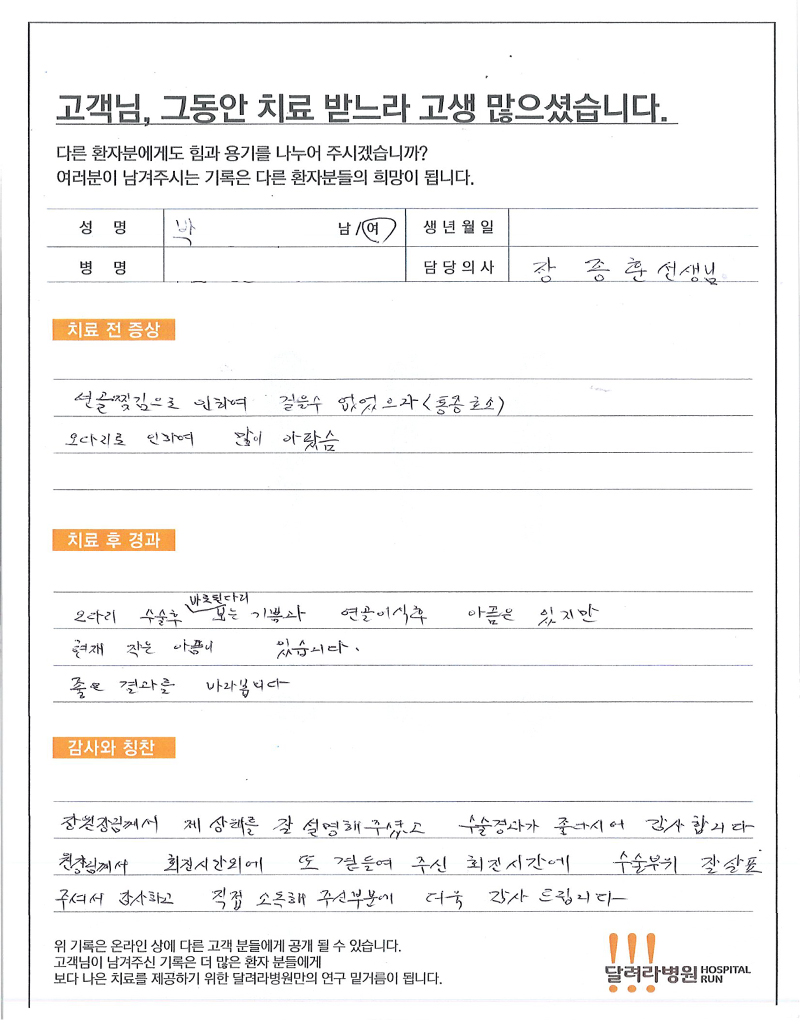 고객님, 그동안 치료 받느라 고생 많으셨습니다.
다른 환자분에게도 힘과 용기를 나누어 주시겠습니까?
여러분이 남겨주시는 기록은 다른 환자분들의 희망이 됩니다.
성 명 박 남/여 생년월일
병 명 담당의사 장 종 훈 선생님
치료 전 증상
연골찢김으로 인하여 걸을수 없었으나 (통증호소)
오다리로 인하여 많이 아팠슴
치료 후 경과
바로된다리
오다리 수술후 보는 기쁨과 연골이식후 아픔은 있지만
현재 작은 아픔이 있습니다.
좋은 결과를 바라봅니다
감사와 칭찬
장원장님께서 제 상태를 잘 설명해주셨고 수술경과가 좋다시어 감사합니다
원장님께서 회진시간외에 또 곁들여 주신 회진시간에 수술부위 잘살표
주셔서 감사하고 직접 소독해 주신부분에 더욱 감사 드립니다
위 기록은 온라인 상에 다른 고객 분들에게 공개 될 수 있습니다.
고객님이 남겨주신 기록은 더 많은 환자 분들에게
보다 나은 치료를 제공하기 위한 달려라병원만의 연구 밑거름이 됩니다.
달려라병원 HOSPITAL RUN